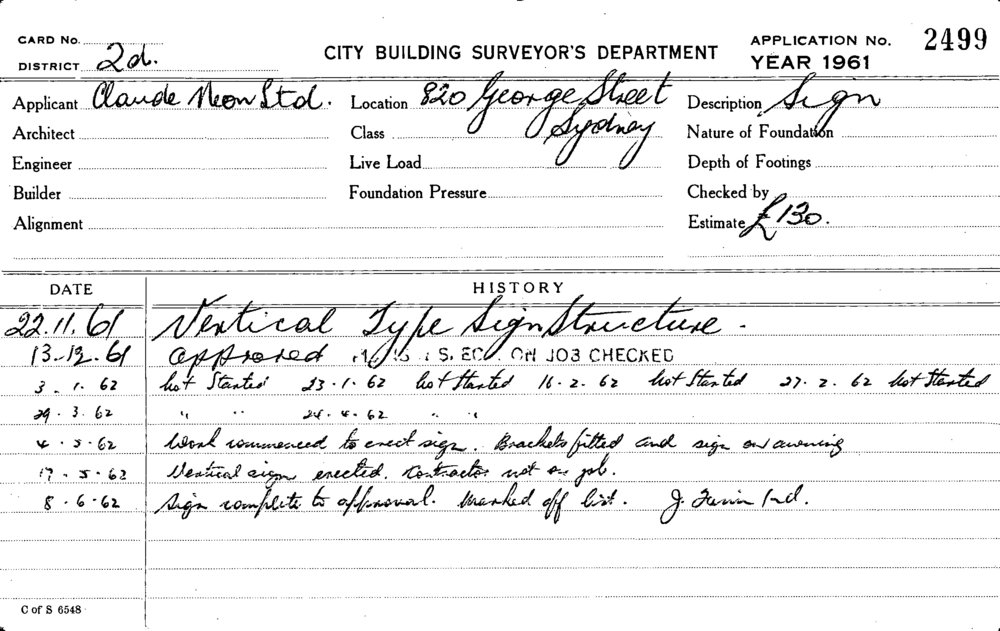 CARD No.
DISTRICT 2d.
CITY BUILDING SURVEYOR'S DEPARTMENT
APPLICATION No. 2499
YEAR 1961
Applicant Claude Neon Ltd. Location 820 George Street Sydney Description Sign
Architect Class Nature of Foundation
Engineer Live Load Depth of Footings
Builder Foundation Pressure Checked by
Alignment Estimate £130.
DATE HISTORY
22.11.61 Vertical Type Sign Structure.
13.12.61 approved ON JOB CHECKED
3.1.62 Not Started 23.1.62 Not Started 16.2.62 Not Started 27.2.62 Not Started
29.3.62 " " 24.4.62 " "
4.5.62 Work commenced to erect sign. Brackets fitted and sign on awning
17.5.62 Vertical sign erected. Contractor not on job.
8.6.62 Sign complete to approval. Marked off list. J.
C of S 6548